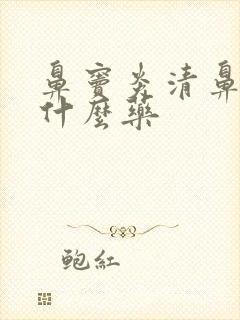 鼻窦炎清鼻
什麼藥
鲍紅